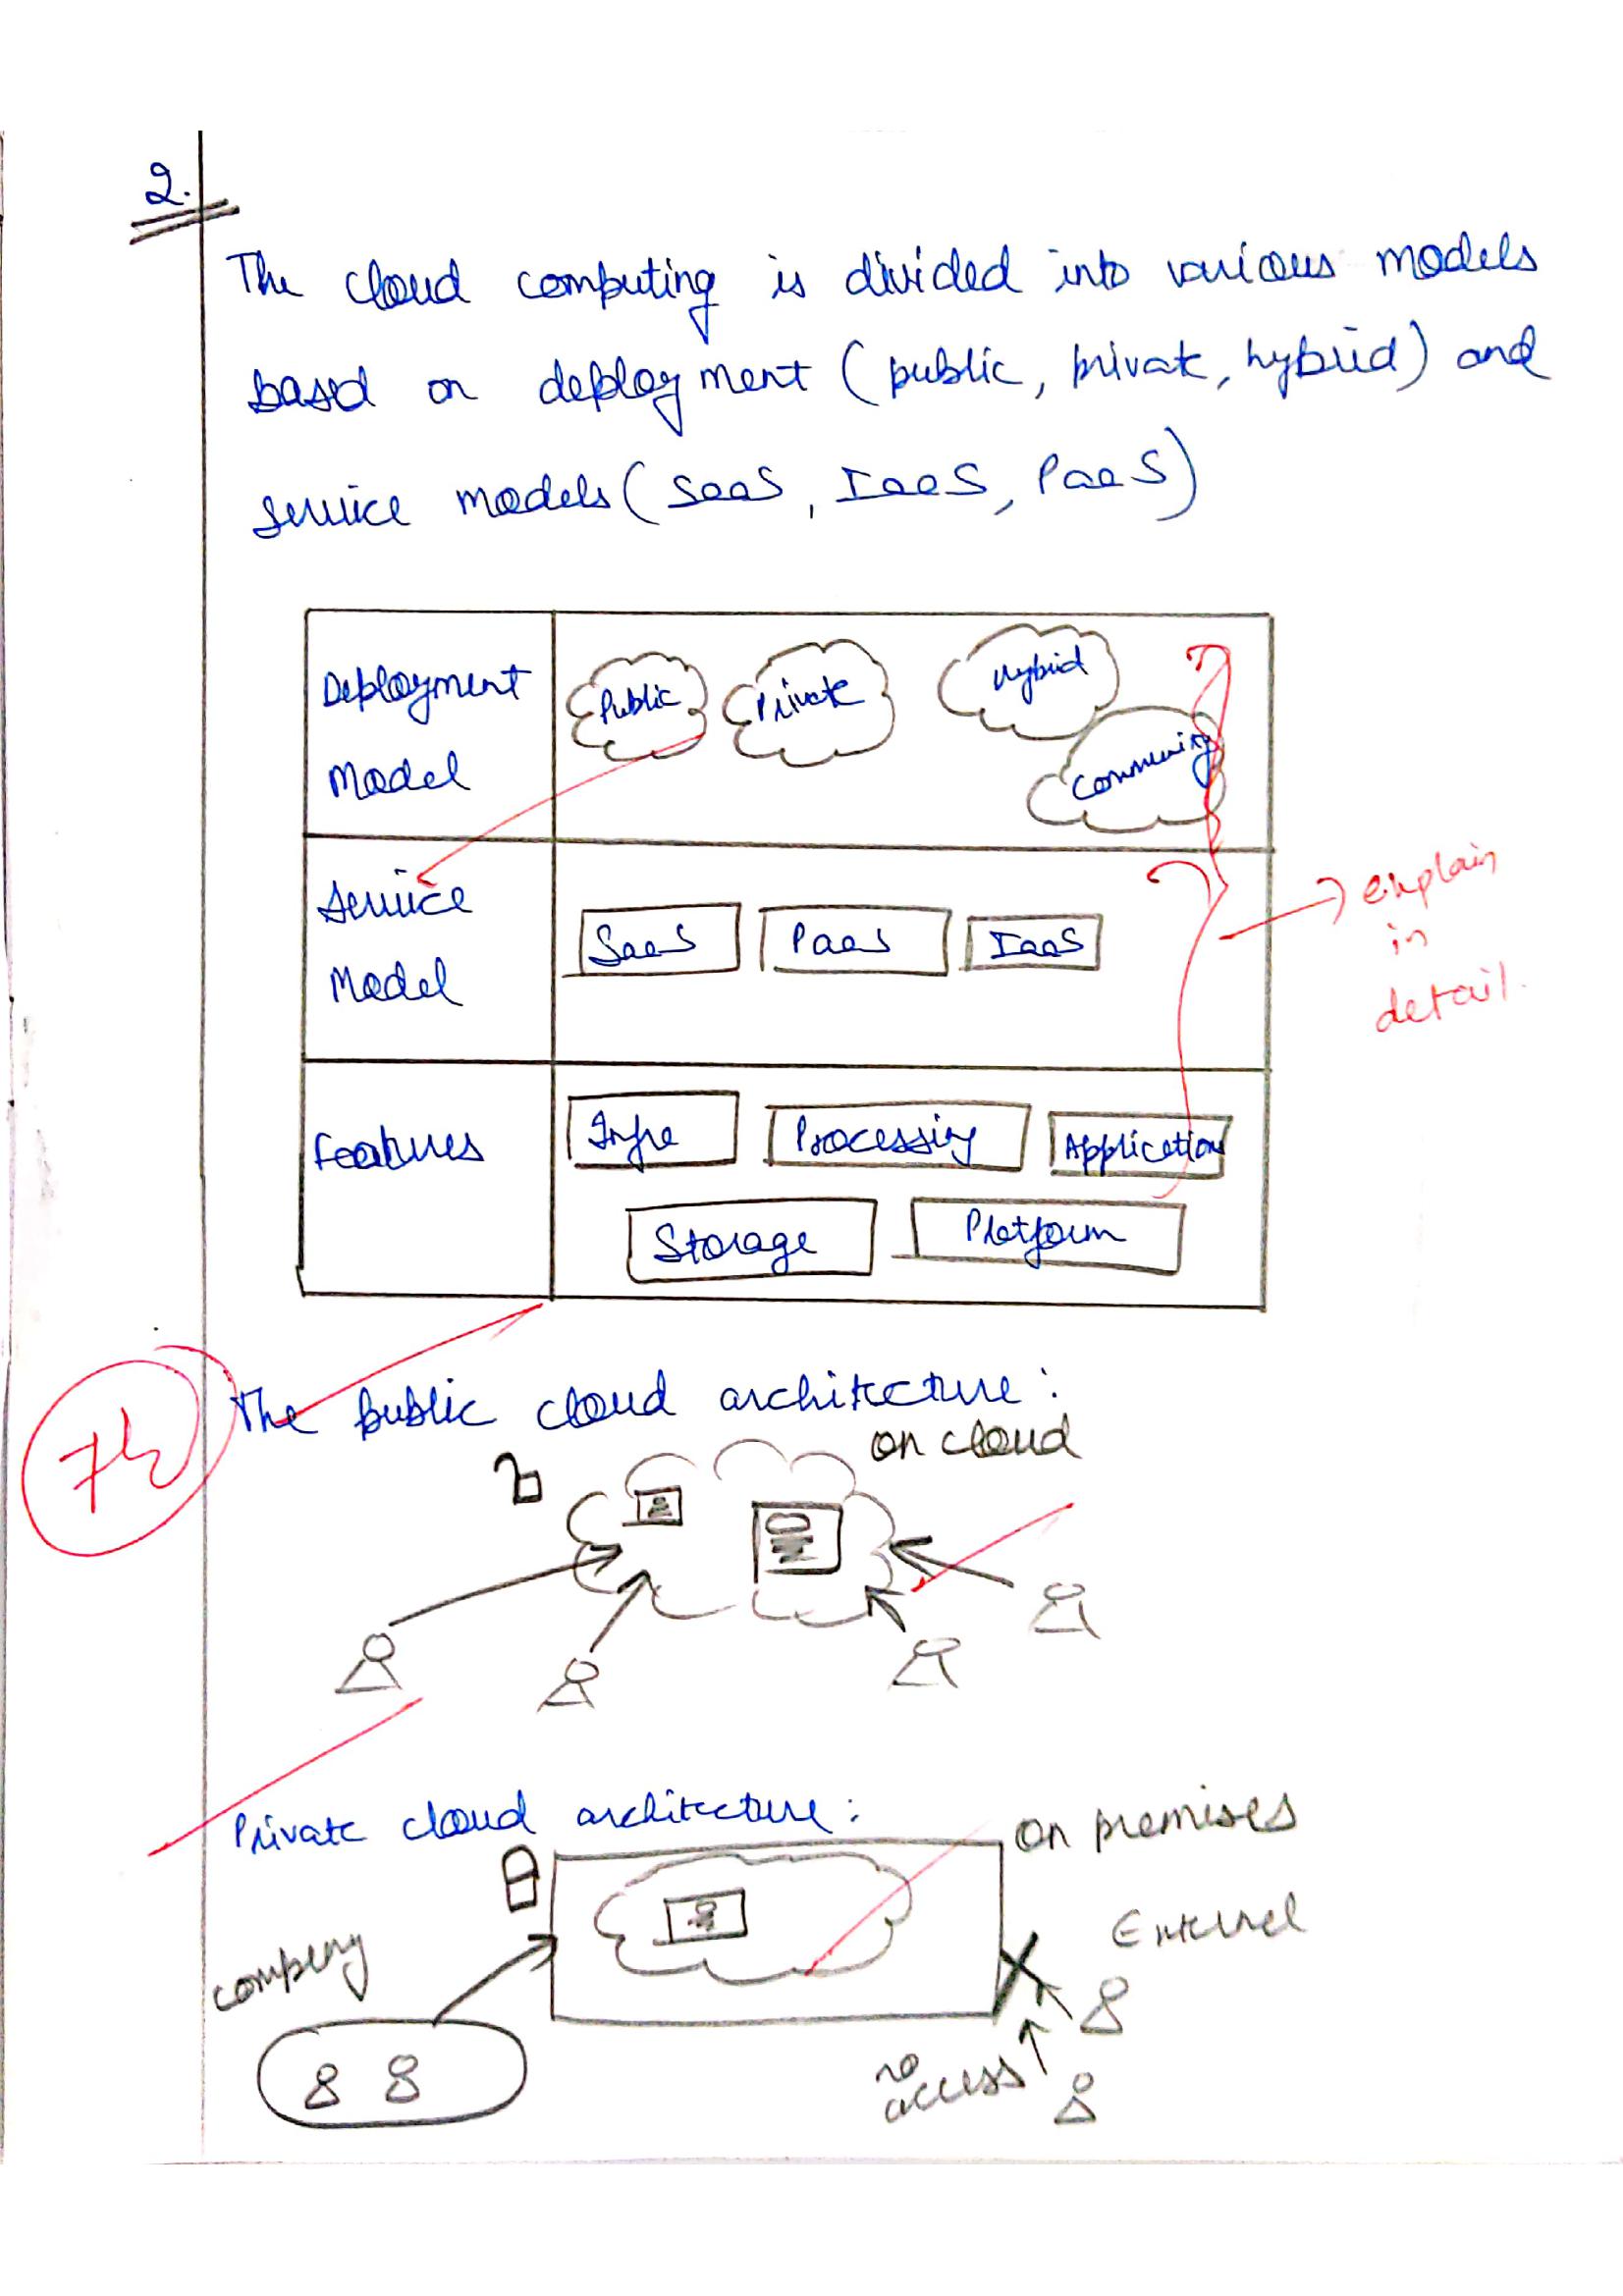 2.
The cloud computing is divided into various models
based on deployment (public, private, hybrid) and
service models (SaaS, IaaS, PaaS)
Deployment
Model
Public
Private
Hybrid
Community
Service
Model
SaaS
PaaS
IaaS
explain
in
detail.
Features
Infra
Processing
Application
Storage
Platform
7½
The public cloud architecture:
on cloud
Private cloud architecture:
on premises
company
External
no
access